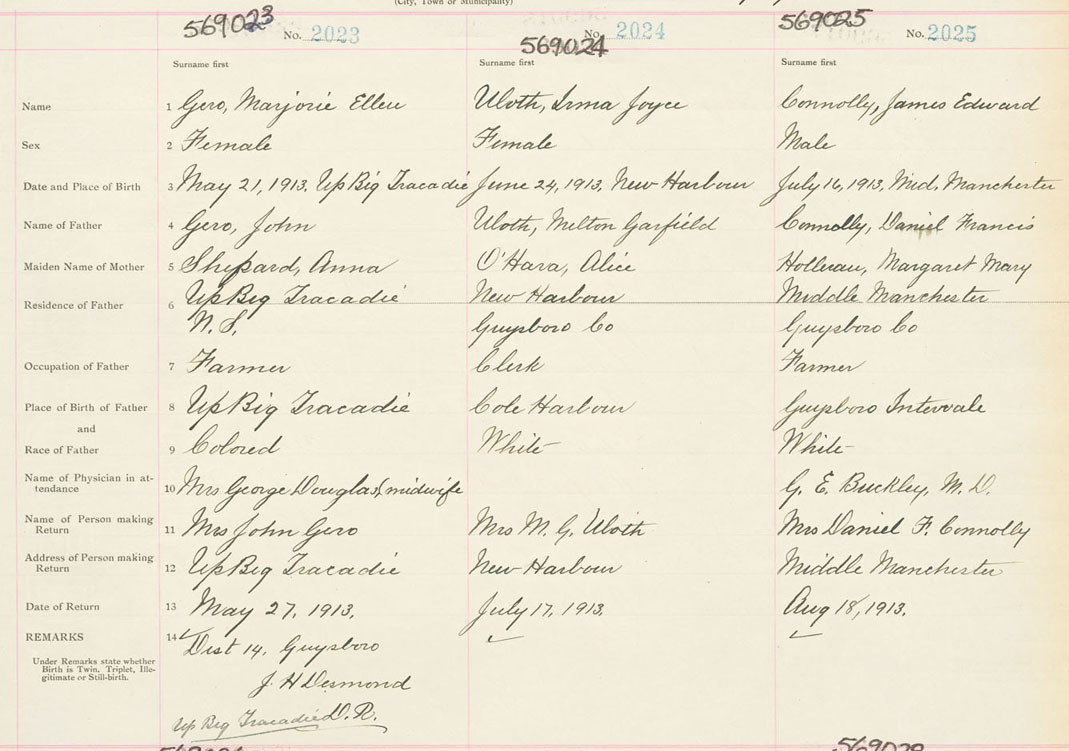 (City, Town or Municipality)
569023 No. 2023
569024 No. 2024
569025 No. 2025
Surname first Surname first Surname first
Name 1 Gero, Marjorie Ellen Uloth, Irma Joyce Connolly, James Edward
Sex 2 Female Female Male
Date and Place of Birth 3 May 21, 1913, Up Big Tracadie June 24, 1913, New Harbour July 16, 1913, Mid. Manchester
Name of Father 4 Gero, John Uloth, Milton Garfield Connolly, Daniel Francis
Maiden Name of Mother 5 Shepard, Anna O'Hara, Alice Holleran, Margaret Mary
Residence of Father 6 Up Big Tracadie New Harbour Middle Manchester
N. S. Guysboro Co Guysboro Co
Occupation of Father 7 Farmer Clerk Farmer
Place of Birth of Father 8 Up Big Tracadie Cole Harbour Guysboro Intervale
and
Race of Father 9 Colored White White
Name of Physician in at-
tendance 10 Mrs George Douglas, midwife G. E. Buckley, M. D.
Name of Person making
Return 11 Mrs John Gero Mrs M. G. Uloth Mrs Daniel F. Connolly
Address of Person making
Return 12 Up Big Tracadie New Harbour Middle Manchester
Date of Return 13 May 27, 1913. July 17, 1913. Aug 18, 1913.
REMARKS 14 Dist 14. Guysboro
Under Remarks state whether
Birth is Twin, Triplet, Ille-
gitimate or Still-birth.
J. H Desmond
Up Big Tracadie D. R.